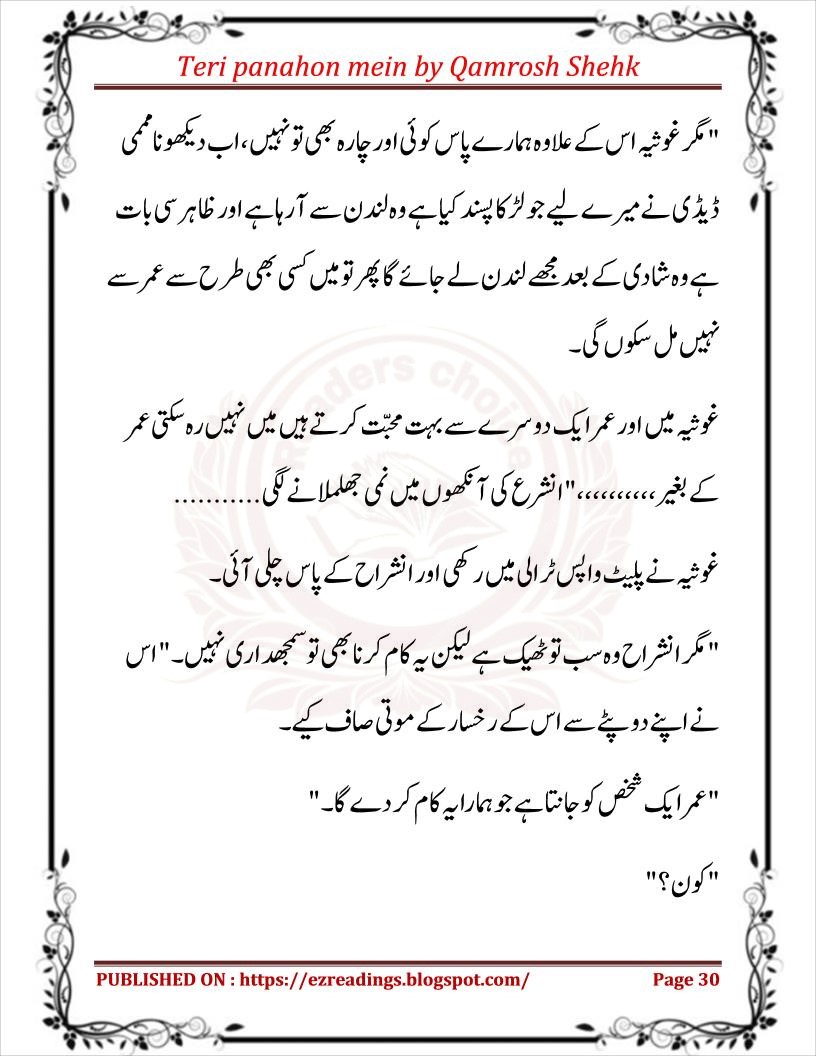 Teri panahon mein by Qamrosh Shehk
"مگر غوثیہ اس کے علاوہ ہمارے پاس کوئی اور چارہ بھی تو نہیں ،اب دیکھو نا ممی
ڈیڈی نے میرے لیے جو لڑکا پسند کیا ہے وہ لندن سے آرہا ہے اور ظاہر سی بات
ہے وہ شادی کے بعد مجھے لندن لے جائے گا پھر تو میں کسی بھی طرح سے عمر سے
نہیں مل سکوں گی۔
Readers choice
غوثیہ میں اور عمر ایک دوسرے سے بہت محبّت کرتے ہیں میں نہیں رہ سکتی عمر
کے بغیر ،،،،،،،،،،"انشرع کی آنکھوں میں نمی جھلملانے لگی...........
غوثیہ نے پلیٹ واپس ٹرالی میں رکھی اور انشراح کے پاس چلی آئی۔
"مگر انشراح وہ سب تو ٹھیک ہے لیکن یہ کام کرنا بھی تو سمجھداری نہیں۔"اس
نے اپنے دوپٹے سے اس کے رخسار کے موتی صاف کیے۔
"عمر ایک شخص کو جانتا ہے جو ہمارا یہ کام کر دے گا۔"
"کون؟"
PUBLISHED ON : https://ezreadings.blogspot.com/ Page 30